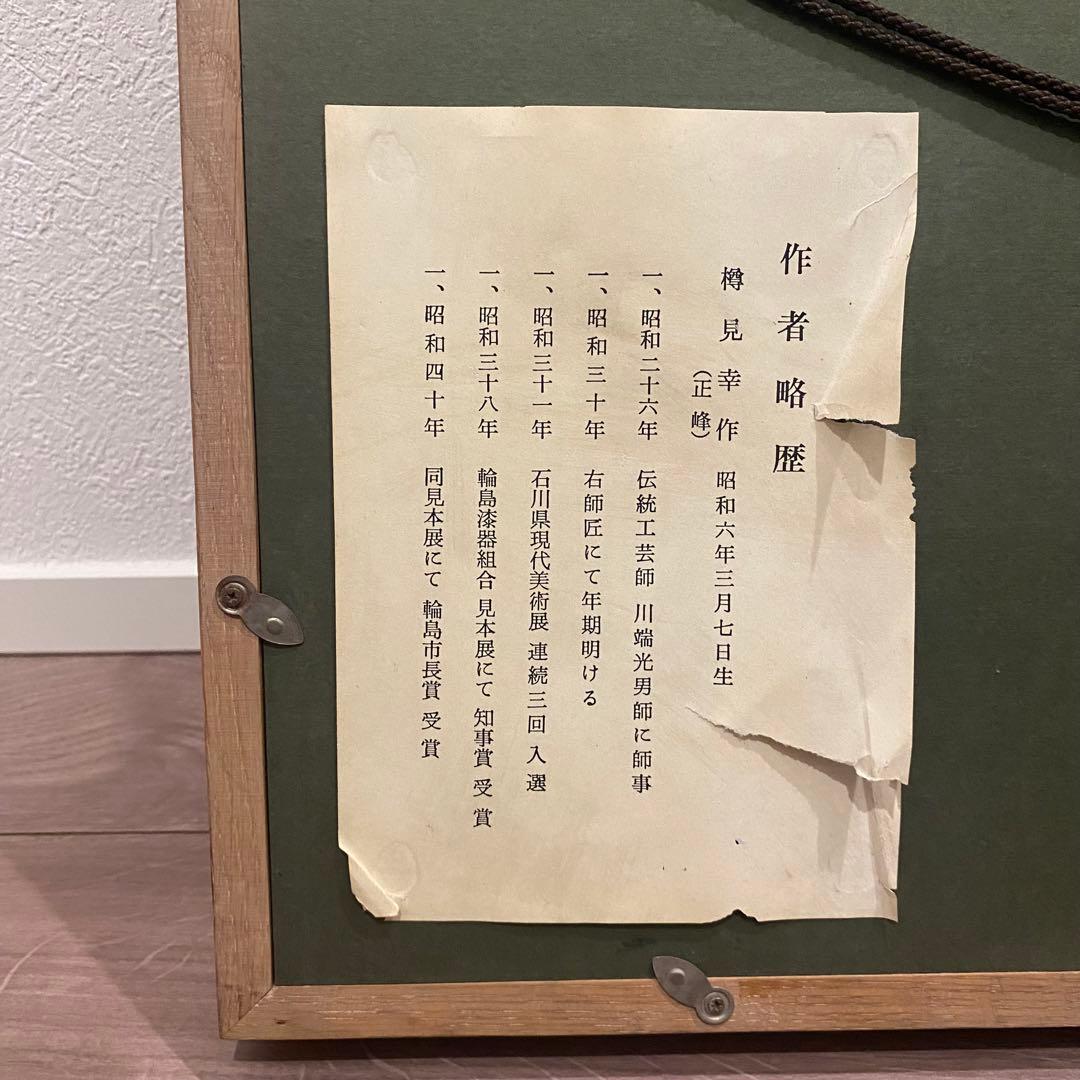 作者略歴
樽見幸作(正峰) 昭和六年三月七日生
一、昭和二十六年 伝統工芸師 川端光男師に師事
一、昭和三十年 右師匠にて年期明ける
一、昭和三十一年 石川県現代美術展 連続三回入選
一、昭和三十八年 輪島漆器組合見本展にて 知事賞受賞
一、昭和四十年 同見本展にて 輪島市長賞受賞